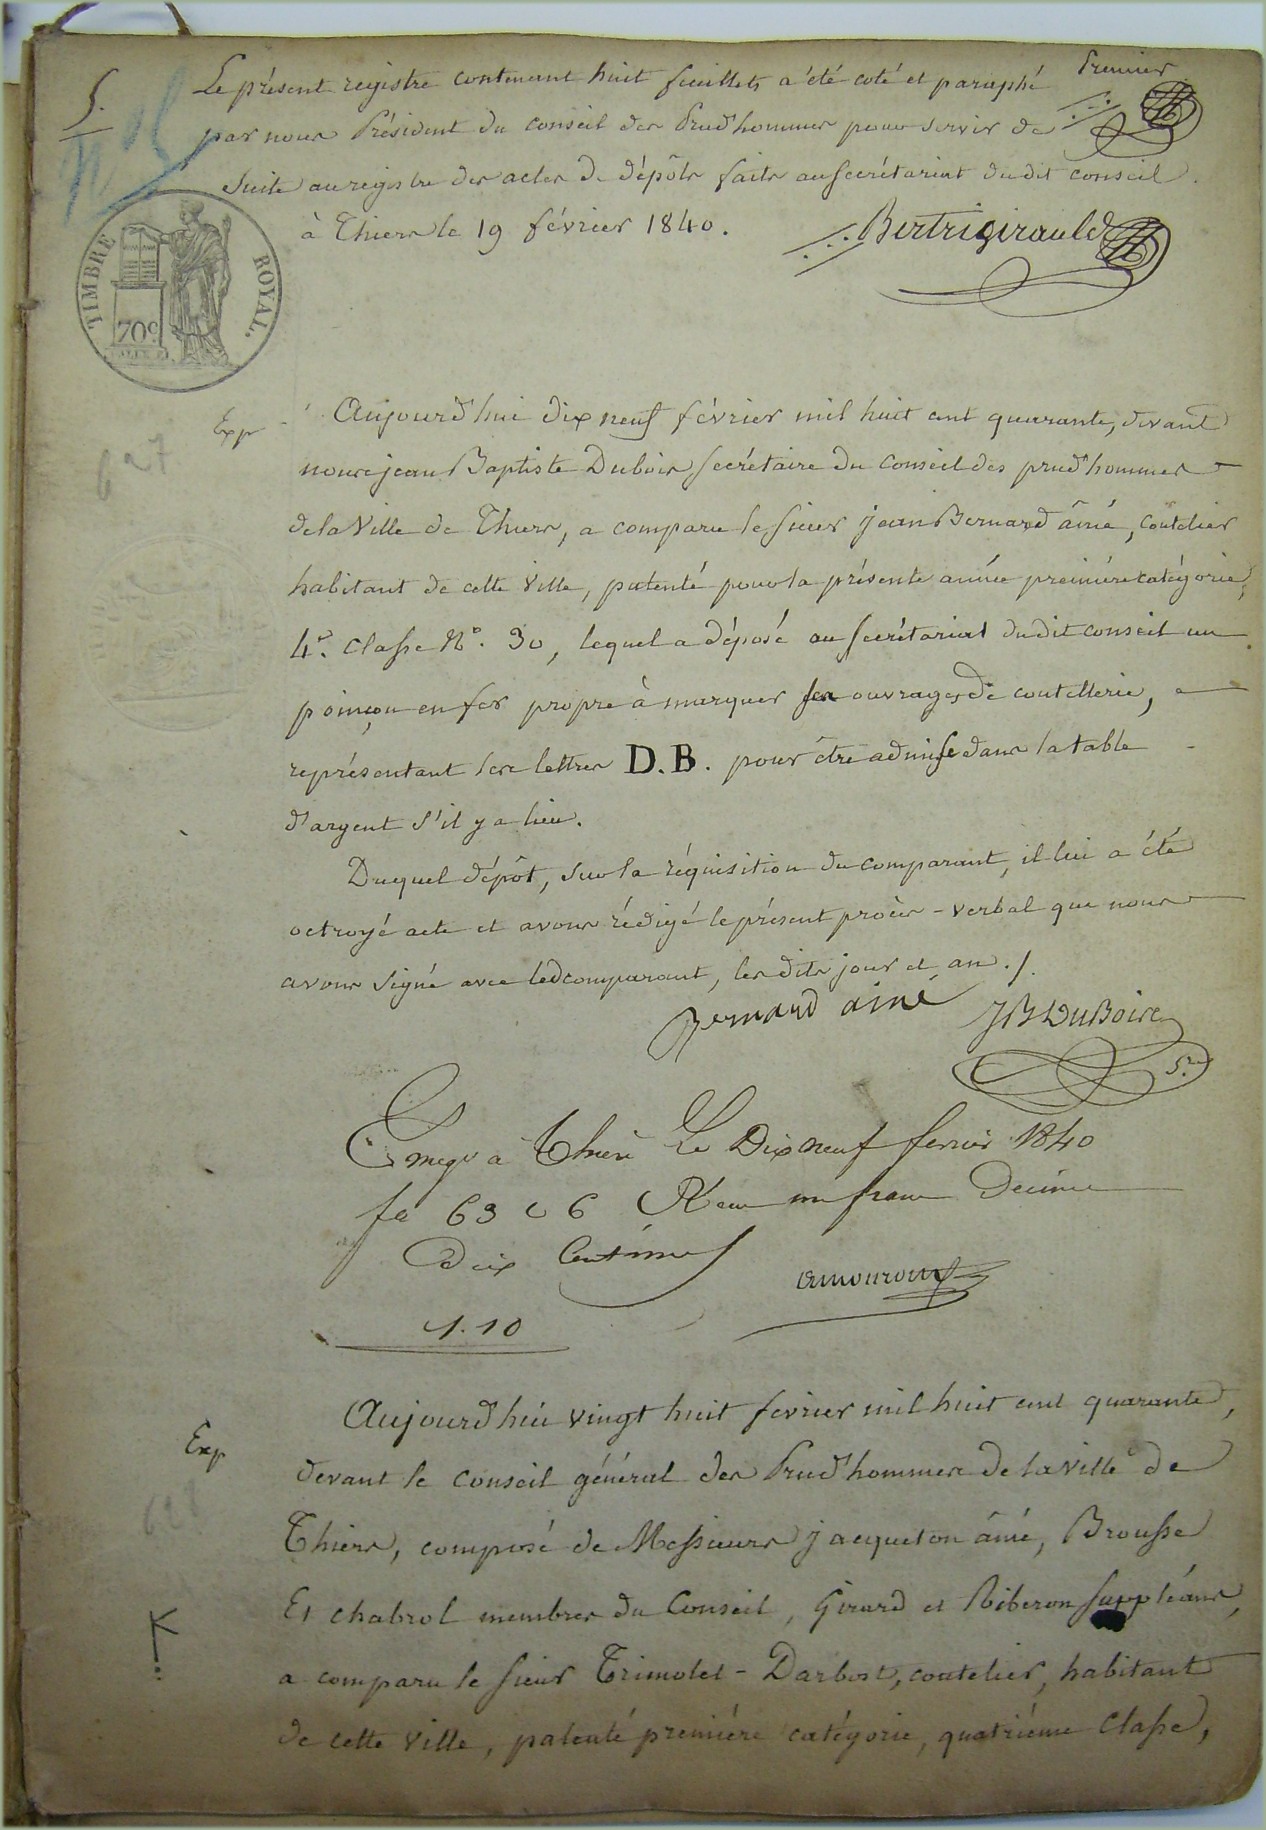 Premier
5.
Le présent registre contenant huit feuillets a été coté et paraphé
par nous Président du conseil des Prud'hommes pour servir de
suite au registre des actes de dépôts faits au secrétariat dudit conseil.
à Thiers le 19 février 1840.
Bertrigirault
TIMBRE ROYAL.
70c
Exp
627
Aujourd'hui dix neuf février mil huit cent quarante, devant
nous jean Baptiste Dubois secrétaire du conseil des prud'hommes
de la Ville de Thiers, a comparu le sieur jean Bernard aîné, coutelier
habitant de cette ville, patenté pour la présente année première catégorie,
4e. classe No. 30, lequel a déposé au secrétariat dudit conseil un
poinçon en fer propre à marquer ses ouvrages de coutellerie,
représentant les lettres D.B. pour être admise dans la table
d'argent s'il y a lieu.
Duquel dépôt, sur la réquisition du comparant, il lui a été
octroyé acte et avons rédigé le présent procès-verbal que nous
avons signé avec led comparant, les dits jour et an ./.
Bernard ainé JB DuBois
Sre
à Thiers Le Dix neuf fevrier 1840
fo 63 c 6 Recu un franc Decime
dix Centimes
1.10
Exp
628
Aujourd'hui vingt huit fevrier mil huit cent quarante,
devant le conseil général des Prud'hommes de la ville de
Thiers, composé de Messieurs jacqueton aîné, Brousse
Et chabrol membres du Conseil, Girard et Riberon suppléans,
a comparu le sieur Trimolet-Darbost, coutelier, habitant
de cette ville, patenté première catégorie, quatrième classe,